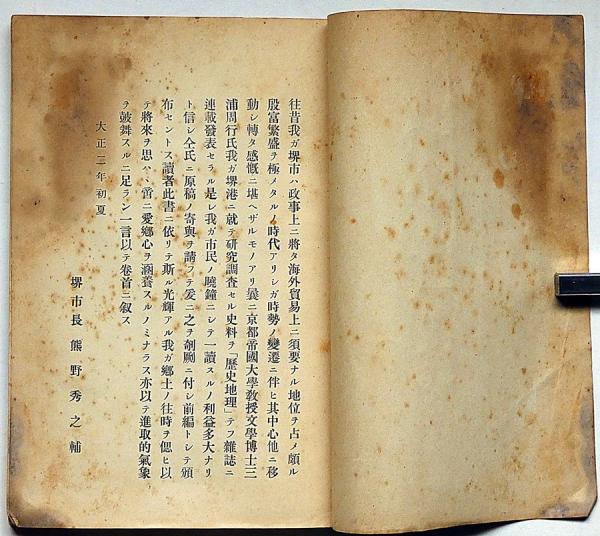 往昔我ガ堺市ハ政事上ニ將タ海外貿易上ニ須要ナル地位ヲ占メ頗ル
殷富繁盛ヲ極メタルノ時代アリシガ時勢ノ變遷ニ伴ヒ其中心他ニ移
動シ轉タ感慨ニ堪ヘザルモノアリ曩ニ京都帝國大學教授文學博士三
浦周行氏我ガ堺港ニ就テ研究調査セル史料ヲ「歷史地理」テフ雜誌ニ
連載發表セラル是レ我ガ市民ノ曉鐘ニシテ一讀スルノ利益多大ナリ
ト信シ仝氏ニ原稿ノ寄與ヲ請フテ爰ニ之ヲ剞劂ニ付シ前編トシテ頒
布セントス讀者此書ニ依リテ斯ル光輝アル我ガ鄕土ノ往時ヲ偲ヒ以
テ將來ヲ思ハヾ啻ニ愛鄕心ヲ涵養スルノミナラス亦以テ進取的氣象
ヲ皷舞スルニ足ラン一言以テ卷首ニ叙ス
大正二年初夏
堺市長 熊野秀之輔